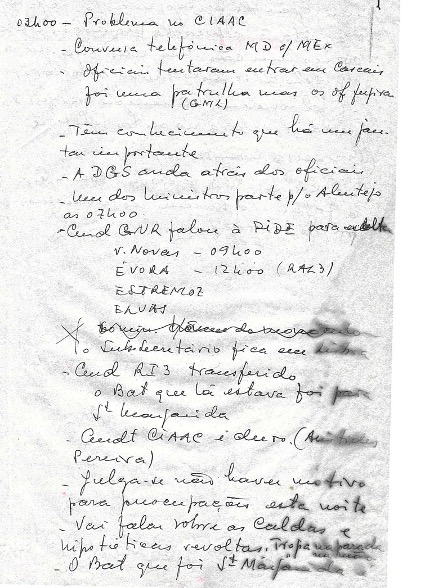 1
03h00 – Problema no CIAAC
- Conversa telefónica MD c/ MEx
- Oficiais tentaram entrar em Cascais
foi uma patrulha mas os of fugira
(GML)
- Têm conhecimento que há um jan-
tar importante
- A DGS anda atrás dos oficiais
- Um dos ministros parte p/ o Alentejo
às 07h00
- Cmd GNR falou à PIDE para
V. Novas - 09h00
ÉVORA - 12h00 (RAL3)
ESTREMOZ
ELVAS
O Subsecretário fica em
- Cmd RI3 transferido
o Bat que lá estava foi para
Stª Margarida
- Cmdt CIAAC é duro. (
Pereira)
- Julga-se não haver motivo
para preocupação esta noite
- Vai falar sobre as Caldas e
hipotéticas revoltas. Tropa na parada
- O Bat que foi Stª Margarida